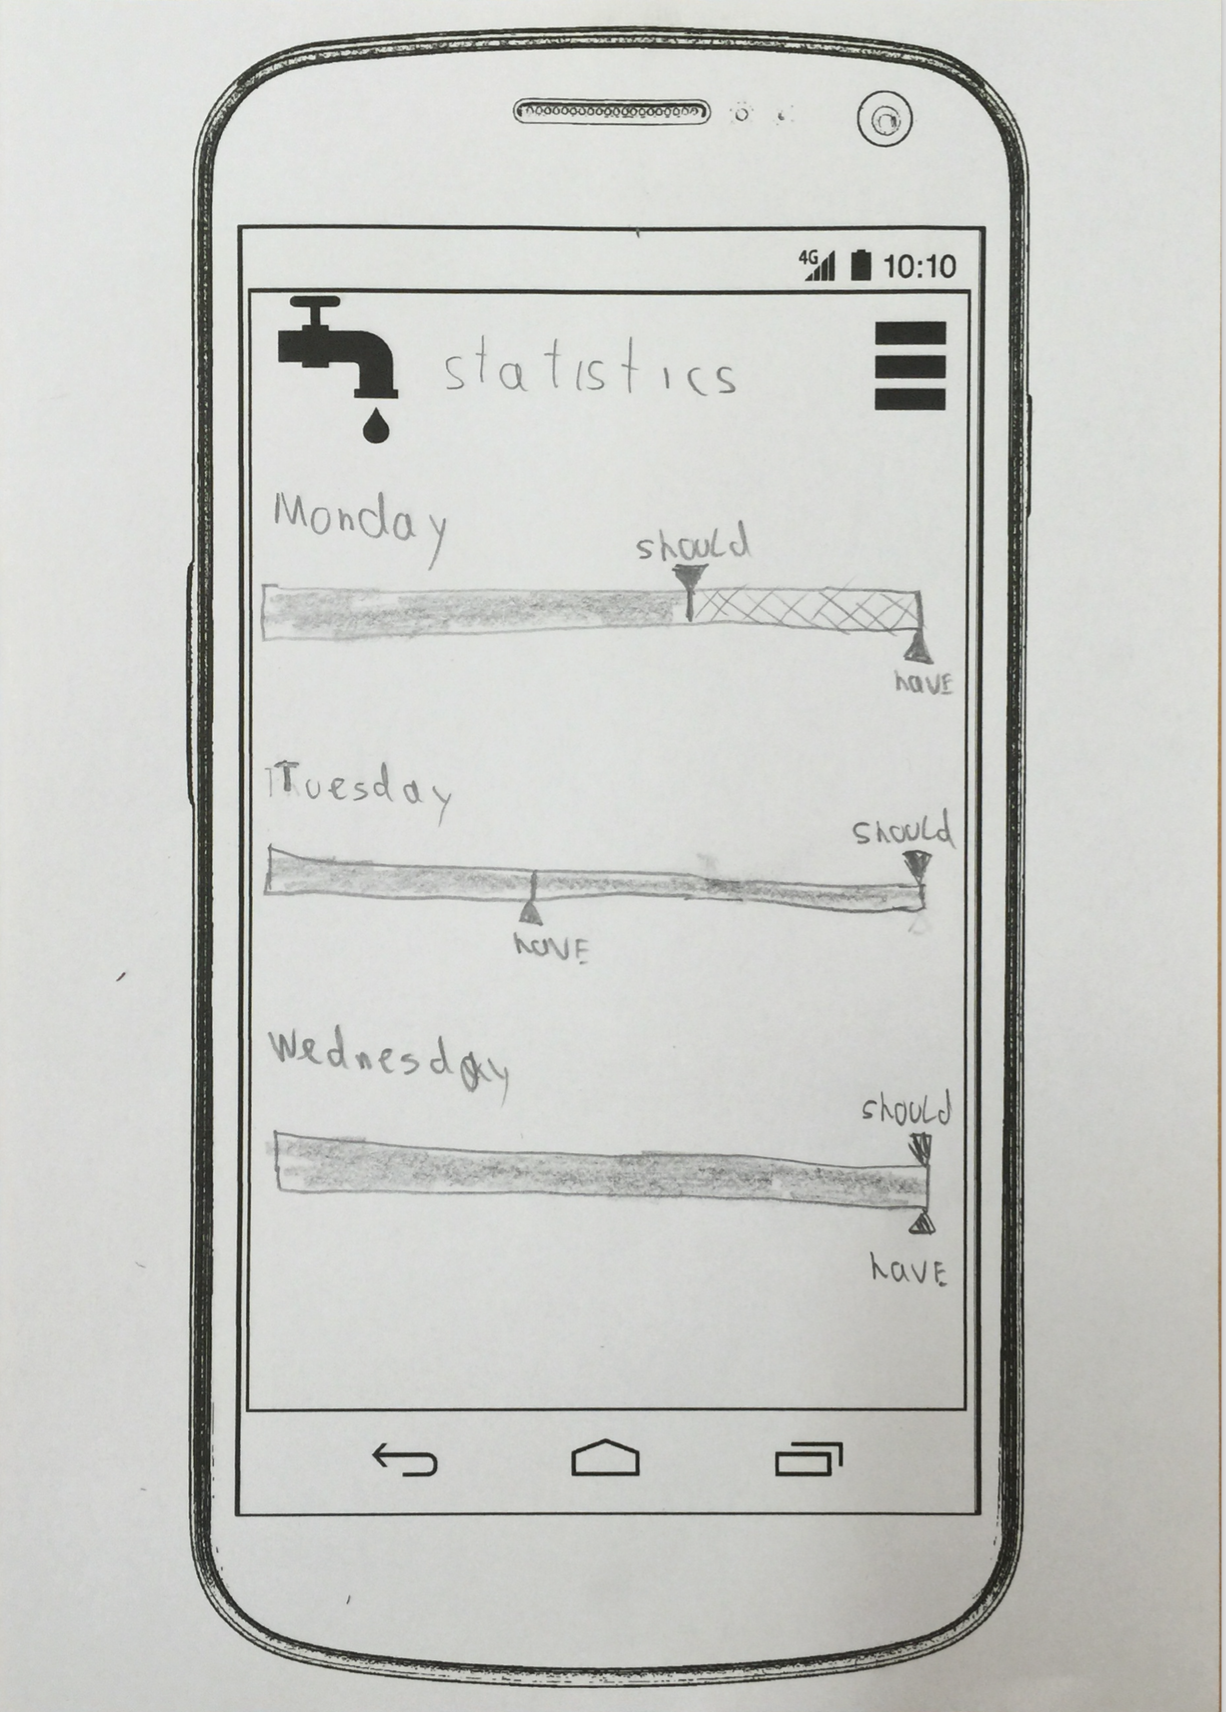 4G 10:10
statistics
Monday
should
have
Tuesday
should
have
Wednesday
should
have